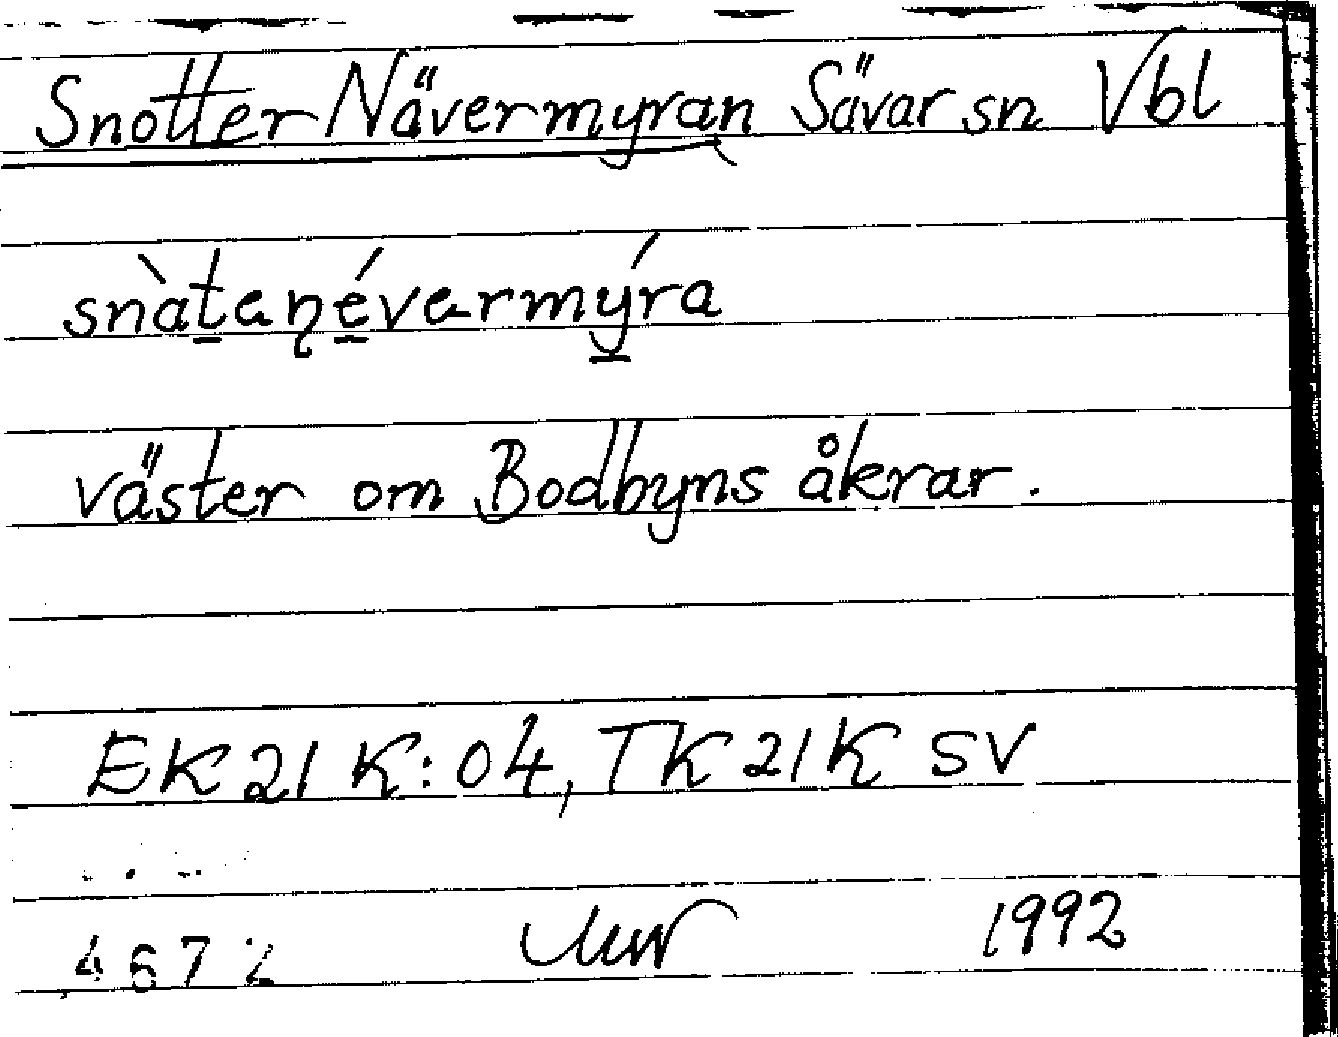 Snotter Nävermyran Sävar sn Vbl
snàtaɳévarmýra
väster om Bodbyns åkrar.
EK21 K:04, TK21K SV
4672 1992